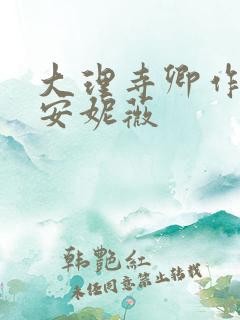 大理寺卿作
安妮薇
韩艷紅
未任同意禁止转载